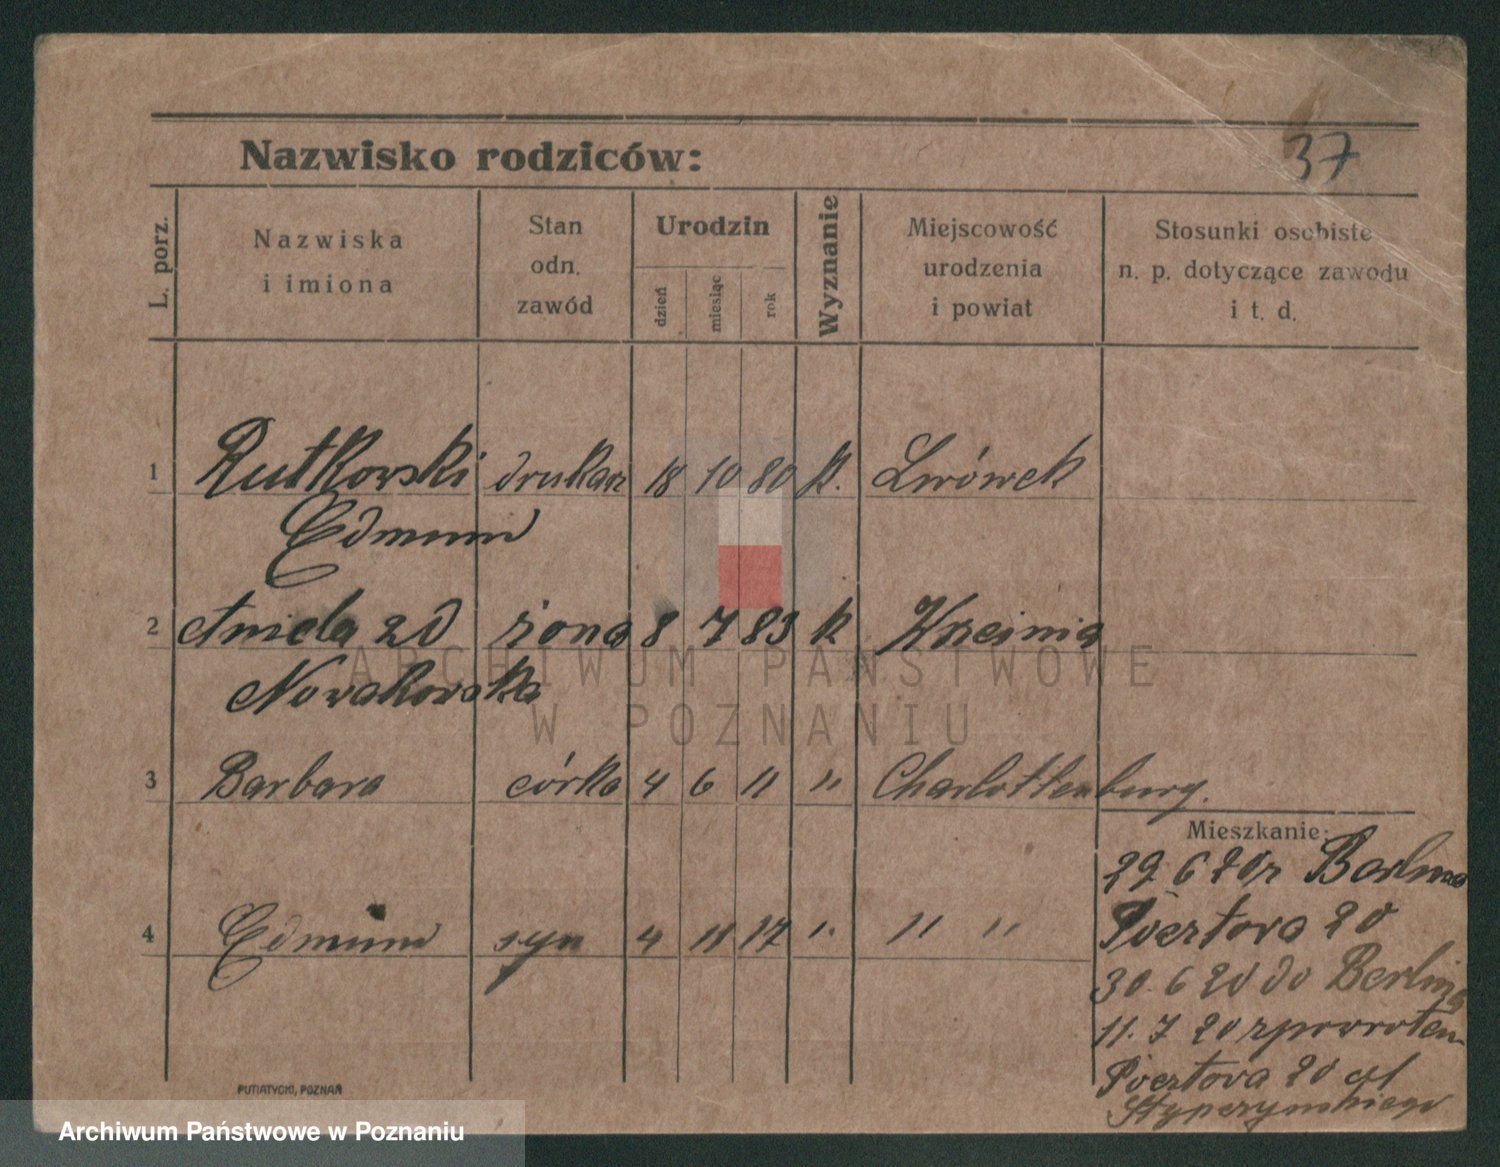 37
Nazwisko rodziców:
L. porz.
Nazwiska
i imiona
Stan
odn.
zawód
Urodzin
dzień
miesiąc
rok
Wyznanie
Miejscowość
urodzenia
i powiat
Stosunki osobiste
n. p. dotyczące zawodu
i t. d.
1 Rutkowski drukarz 18 10 80 k. Lwówek
Edmund
2 Aniela zd żona 8 7 83 k
Nowakowska
3 Barbara córka 4 6 11 " Charlottenburg.
Mieszkanie:
29 6 20 r Berlina
4 Edmund syn 4 11 17 " " "
20
30. 6 20 do Berlina
11. 7 20 zpowrotem
20
PUTIATYCKI, POZNAŃ
ARCHIWUM PAŃSTWOWE
W POZNANIU
Archiwum Państwowe w Poznaniu